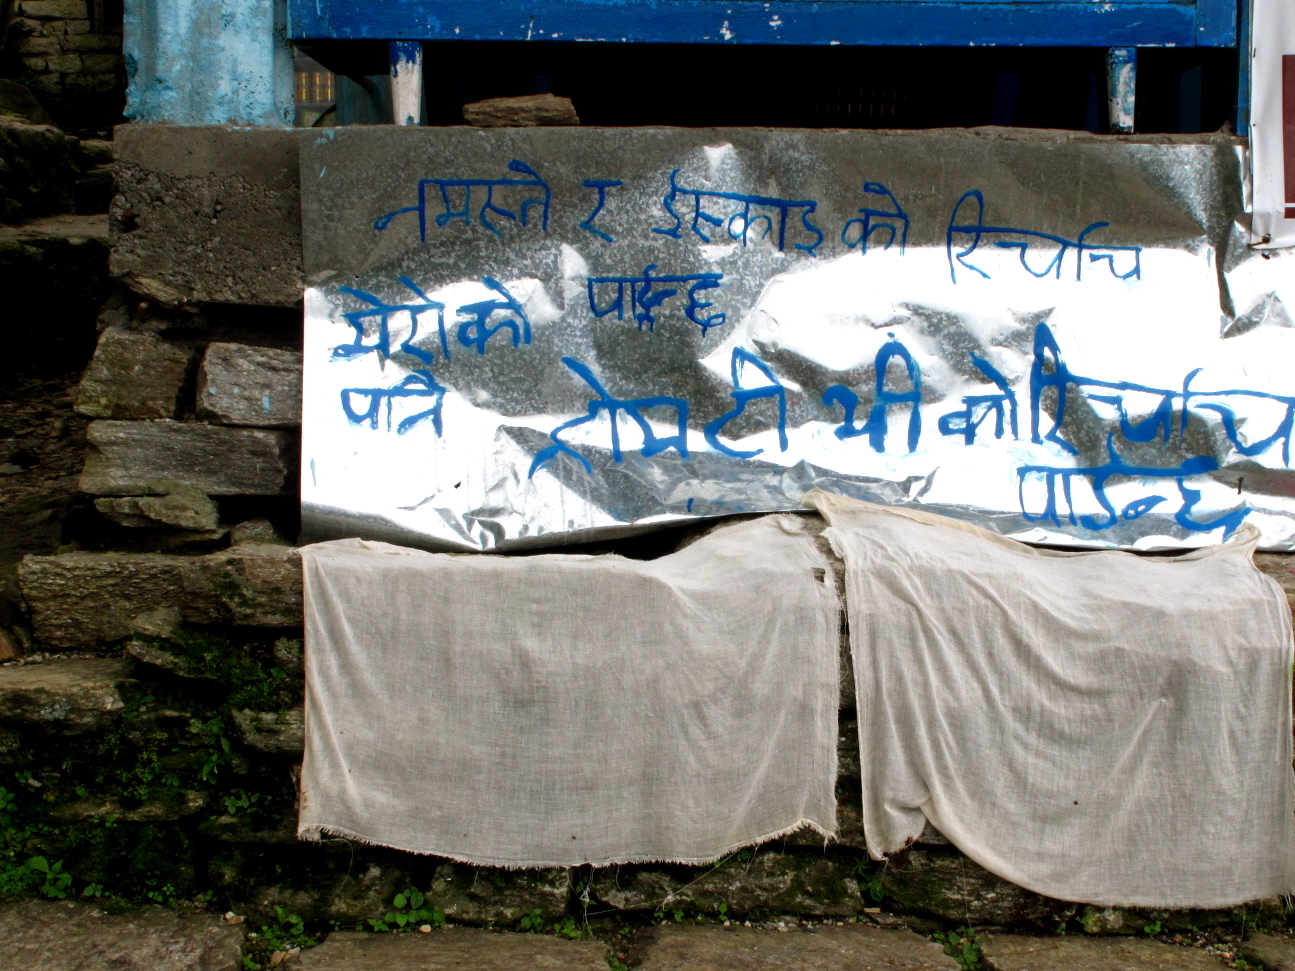 नमस्ते र ईस्काइ को रिर्चाच
मेरोको पाईन्छ
पनि होम टी भी को रिर्चाच
पाईन्छ